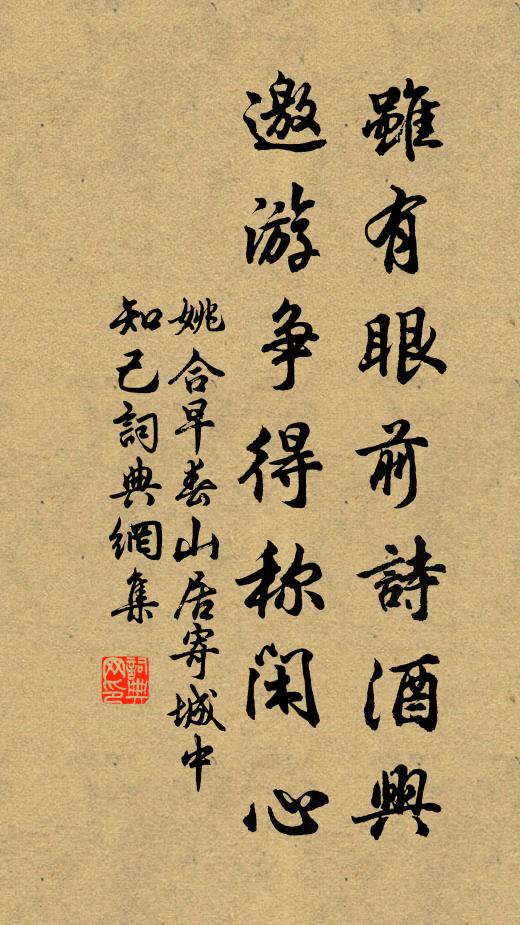 雖有眼前詩酒興
邀游争得称閑心
姚合早春山居寄城中
知己詞典網集
詞典網印